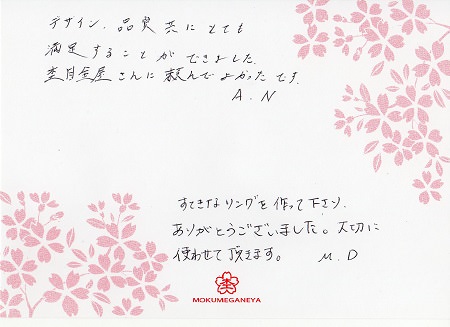 デザイン、品質共にとても
満足することができました。
杢目金屋さんに頼んでよかったです。
A.N
すてきなリングを作って下さり、
ありがとうございました。大切に
使わせて頂きます。 M.D
杢
MOKUMEGANEYA